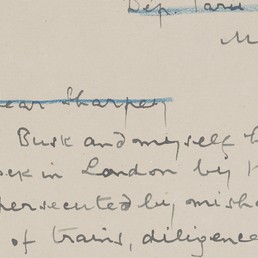 Dép.
M
ear Sharpey
Busk and myself h
ock in London by
persecuted by misha
of trains, diligence